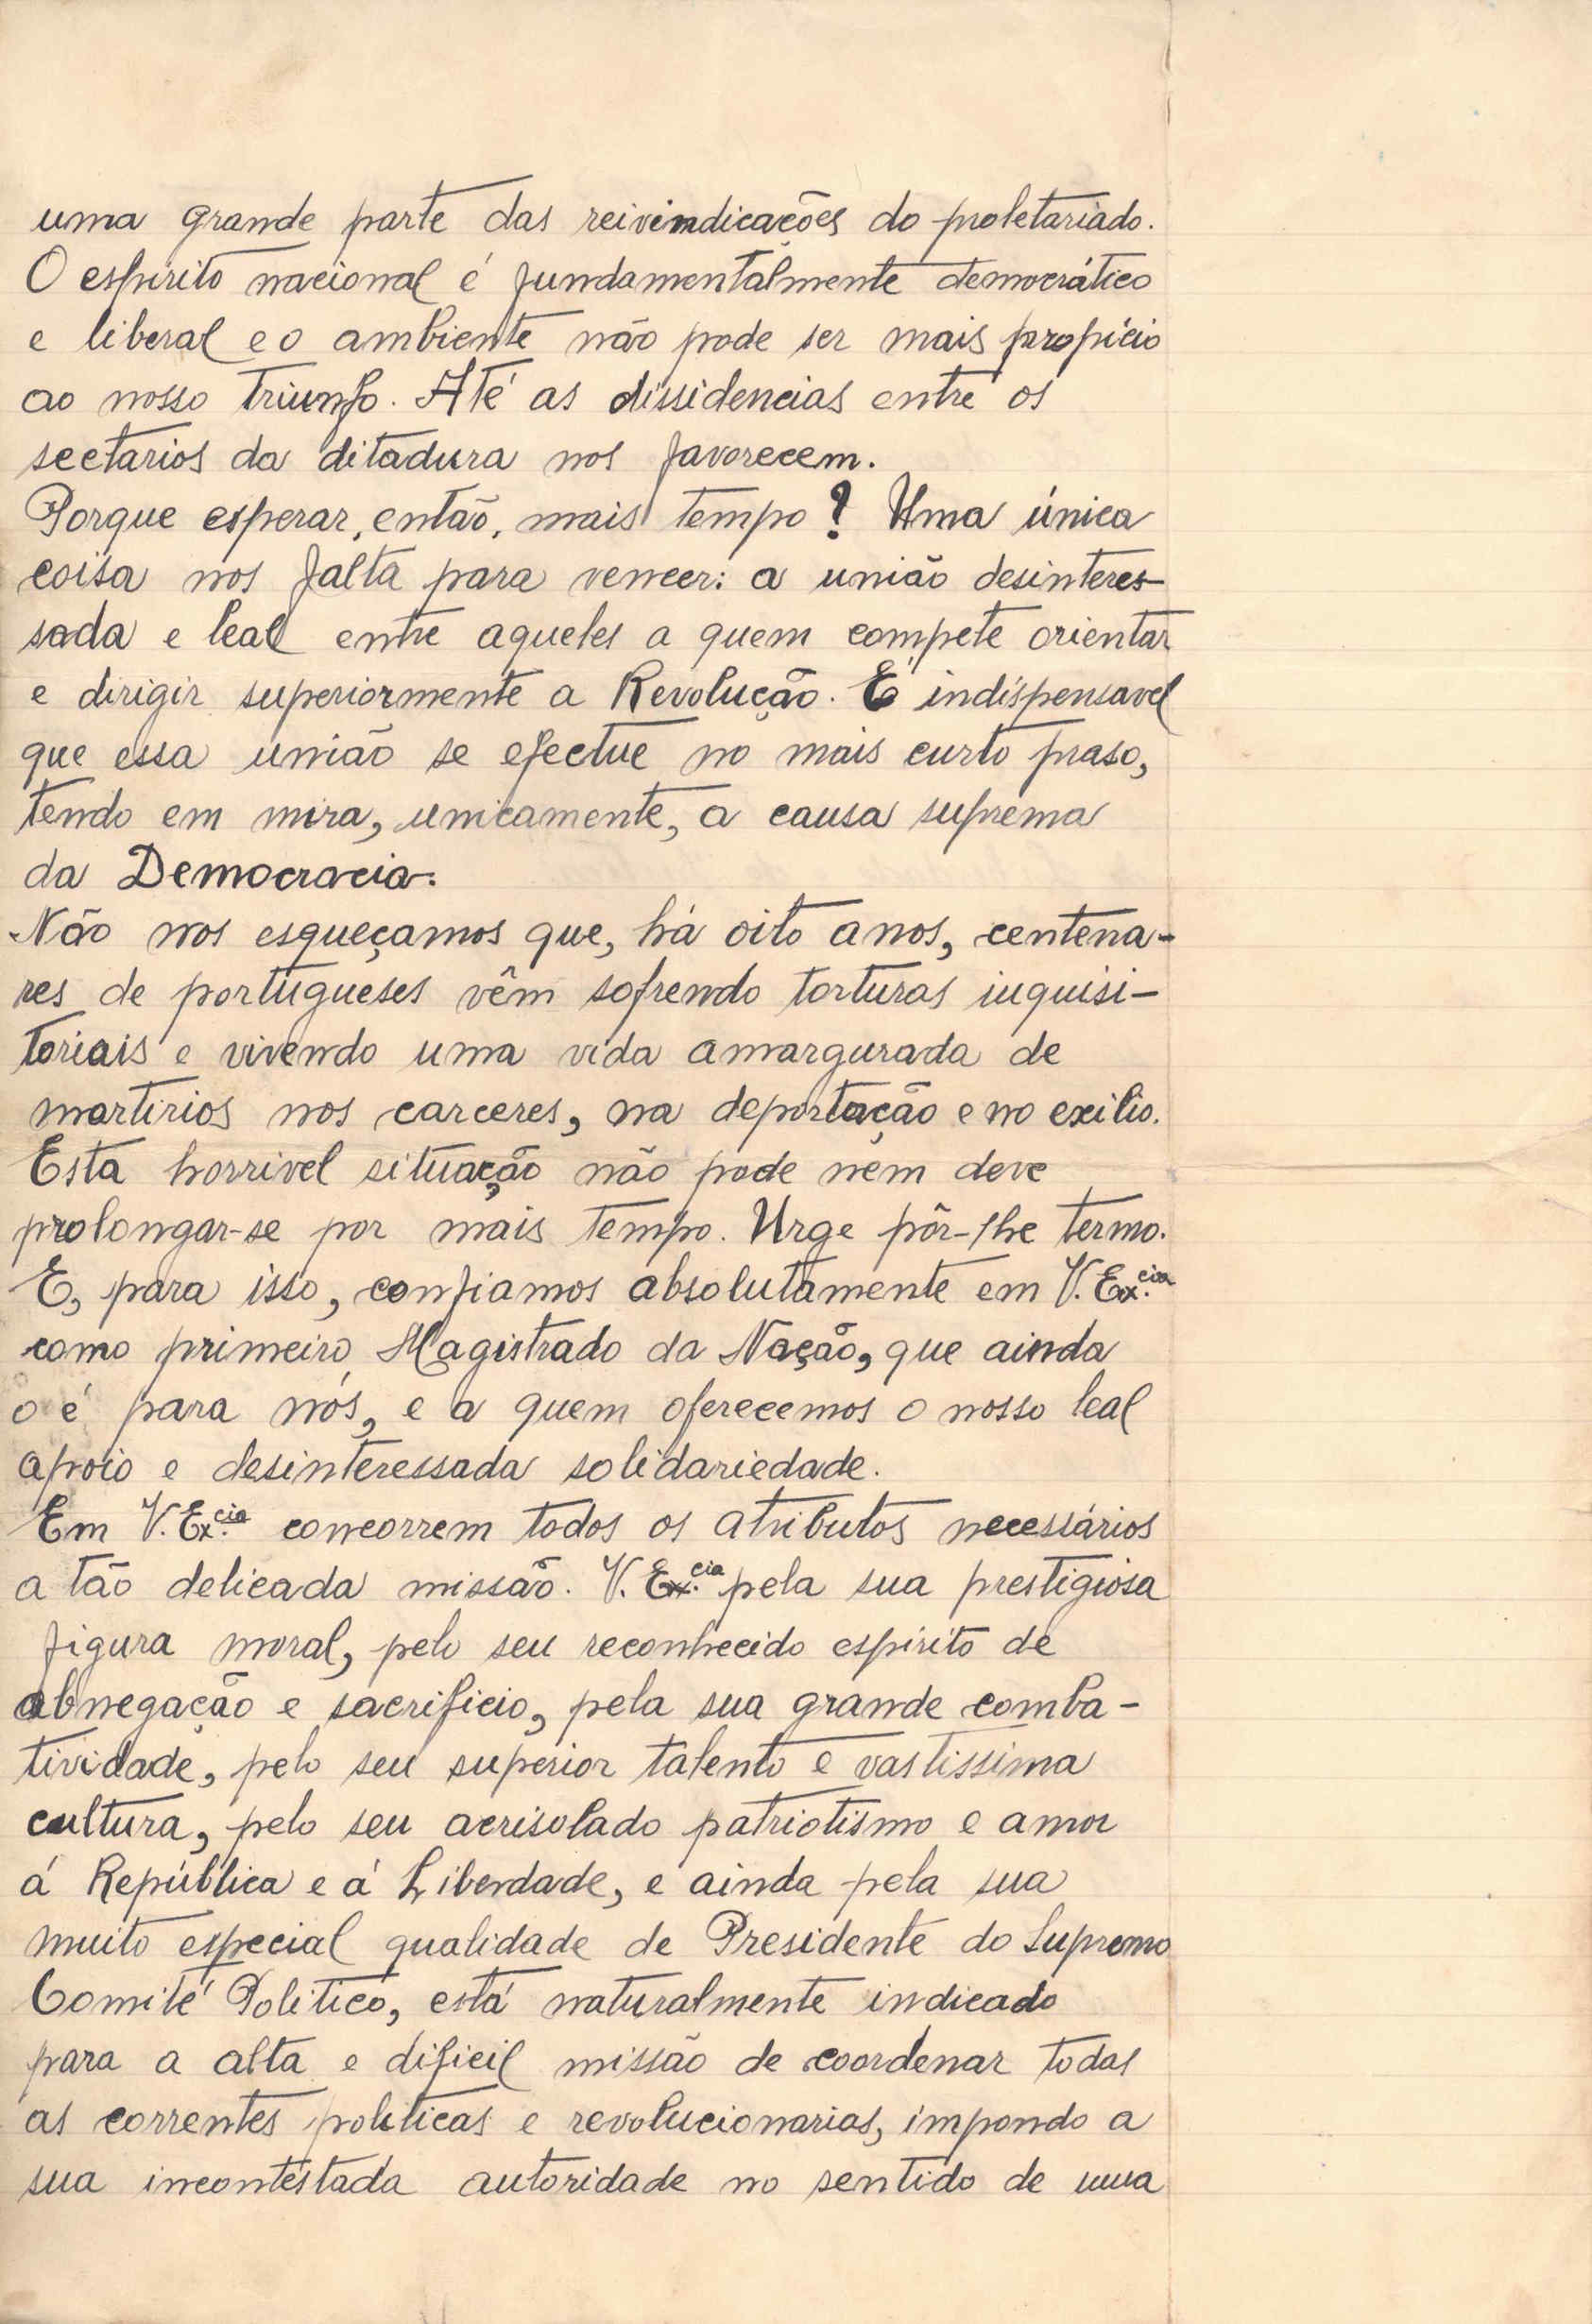 uma grande parte das reivindicações do proletariado.
O espirito nacional é fundamentalmente democrático
e liberal e o ambiente não pode ser mais propício
ao nosso triunfo. Até as dissidencias entre os
sectarios da ditadura nos favorecem.
Porque esperar, então, mais tempo? Uma única
coisa nos falta para vencer: a união desinteres-
sada e leal entre aqueles a quem compete orientar
e dirigir superiormente a Revolução. É indispensavel
que essa união se efectue no mais curto praso,
tendo em mira, unicamente, a causa suprema
da Democracia.
Não nos esqueçamos que, há oito anos, centena-
res de portugueses vêm sofrendo torturas inquisi-
toriais e vivendo uma vida amargurada de
martirios nos carceres, na deportação e no exilio.
Esta horrivel situação não pode nem deve
prolongar-se por mais tempo. Urge pôr-lhe termo.
E, para isso, confiamos absolutamente em V. Ex.cia
como primeiro Magistrado da Nação, que ainda
o é para nós, e a quem oferecemos o nosso leal
apoio e desinteressada solidariedade.
Em V. Ex.cia concorrem todos os atributos necessários
a tão delicada missão. V. Ex.cia pela sua prestigiosa
figura moral, pelo seu reconhecido espirito de
abnegação e sacrificio, pela sua grande comba-
tividade, pelo seu superior talento e vastissima
cultura, pelo seu acrisolado patriotismo e amor
á República e á Liberdade, e ainda pela sua
muito especial qualidade de Presidente do Supremo
Comité Politico, está naturalmente indicado
para a alta e dificil missão de coordenar todas
as correntes politicas e revolucionarias, impondo a
sua incontestada autoridade no sentido de uma